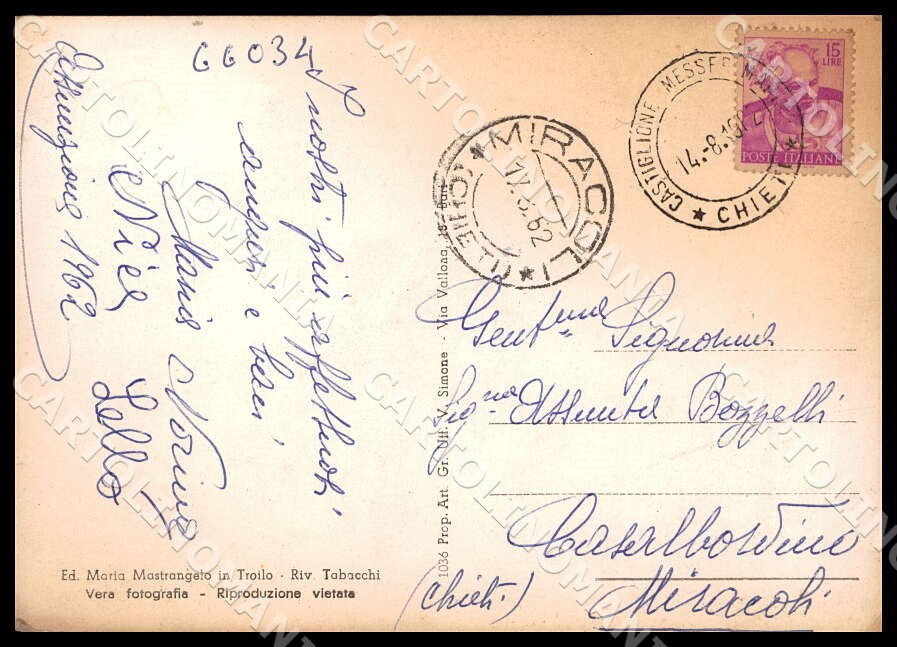 66034
I nostri più affettuosi
auguri e baci
Maria Norina
Nia Lello
Assunzione 1962
15
LIRE
POSTE ITALIANE
CASTIGLIONE MESSER MARINO
14.-8.1962
★ CHIETI ★
★ MIRACOLI ★
(CHIETI)
Gent.ma Signorina
Sig.na Assunta Bozzelli
Casalbordino
(Chieti) Miracoli
1036 Prop. Art. Gr. Nil. V. Simone - Via Vallona, Bari
Ed. Maria Mastrangelo in Troilo - Riv. Tabacchi
Vera fotografia - Riproduzione vietata
CARTOLINOMANIA